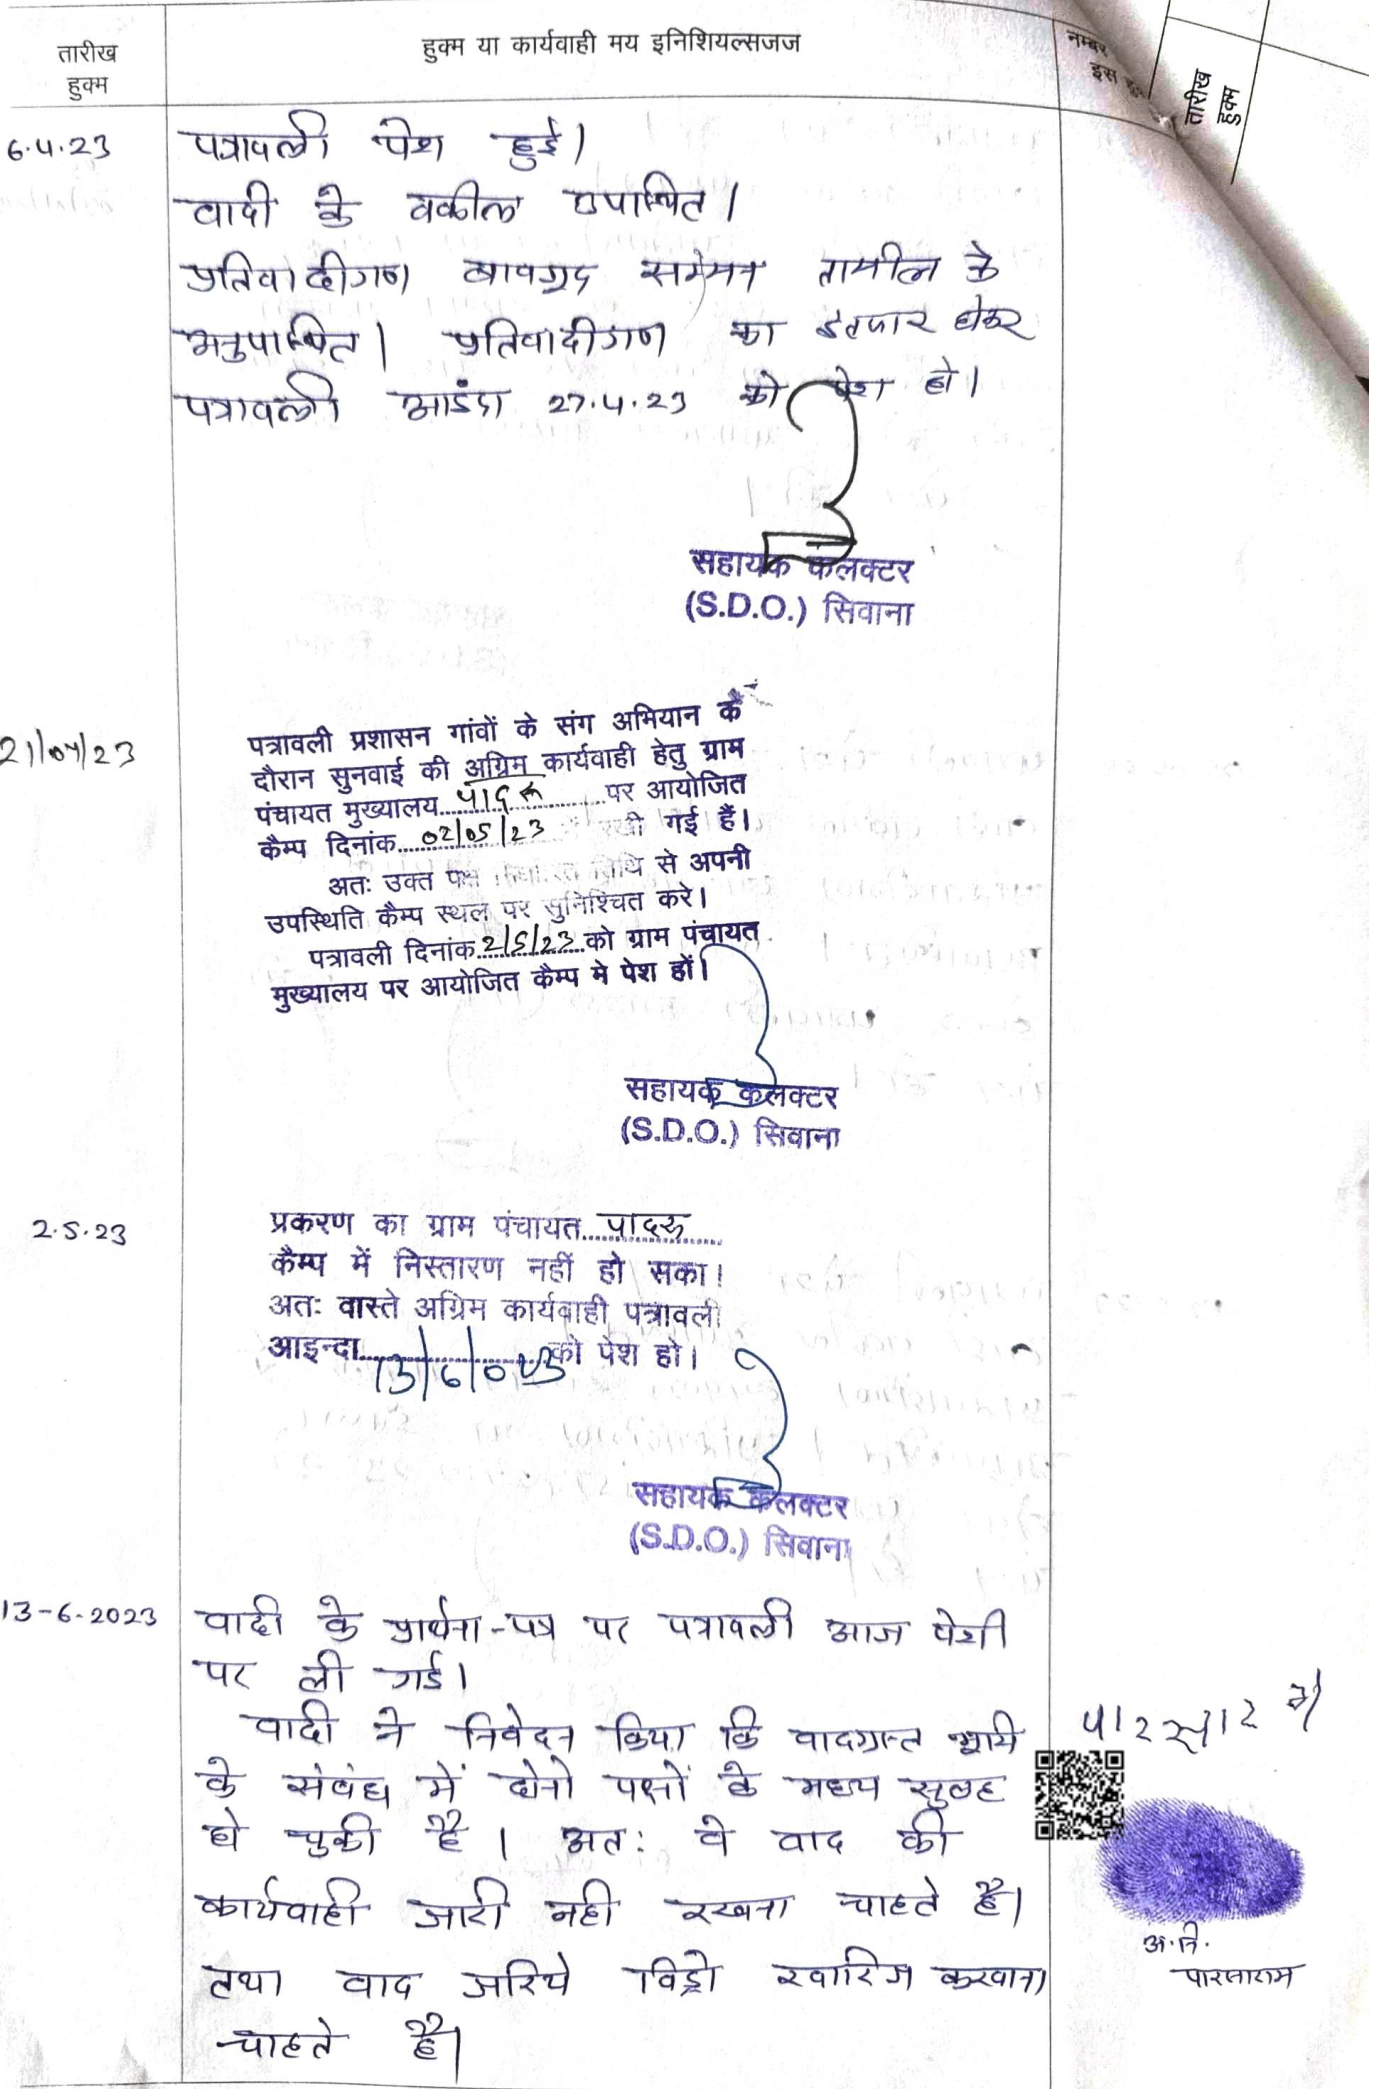 तारीख
हुक्म
हुक्म या कार्यवाही मय इनिशियल्सजज
नम्बर
इस
तारीख
हुक्म
6.4.23
पत्रावली पेश हुई।
वादी के वकील उपस्थित।
प्रतिवादीगण बावजूद सम्मन तामील के
अनुपस्थित। प्रतिवादीगण का इंतजार होकर
पत्रावली आइंदा 27.4.23 को पेश हो।
सहायक कलक्टर
(S.D.O.) सिवाना
21/04/23
पत्रावली प्रशासन गांवों के संग अभियान के
दौरान सुनवाई की अग्रिम कार्यवाही हेतु ग्राम
पंचायत मुख्यालय पादरू पर आयोजित
कैम्प दिनांक 02/05/23 में रखी गई हैं।
अतः उक्त पक्ष तिथि से अपनी
उपस्थिति कैम्प स्थल पर सुनिश्चित करे।
पत्रावली दिनांक 2/5/23 को ग्राम पंचायत
मुख्यालय पर आयोजित कैम्प मे पेश हों।
सहायक कलक्टर
(S.D.O.) सिवाना
2.5.23
प्रकरण का ग्राम पंचायत पादरू
कैम्प में निस्तारण नहीं हो सका।
अतः वास्ते अग्रिम कार्यवाही पत्रावली
आइन्दा 13/6/023 को पेश हो।
सहायक कलक्टर
(S.D.O.) सिवाना
13-6-2023
वादी के प्रार्थना-पत्र पर पत्रावली आज पेशी
पर ली गई।
वादी ने निवेदन किया कि वादग्रस्त भूमि
के संबंध में दोनो पक्षों के मध्य सुलह
हो चुकी है। अत: वे वाद की
कार्यवाही जारी नही रखना चाहते है।
तथा वाद जरिये विड्रो खारिज करवाना
चाहते है।
अ.नि.
पारसाराम